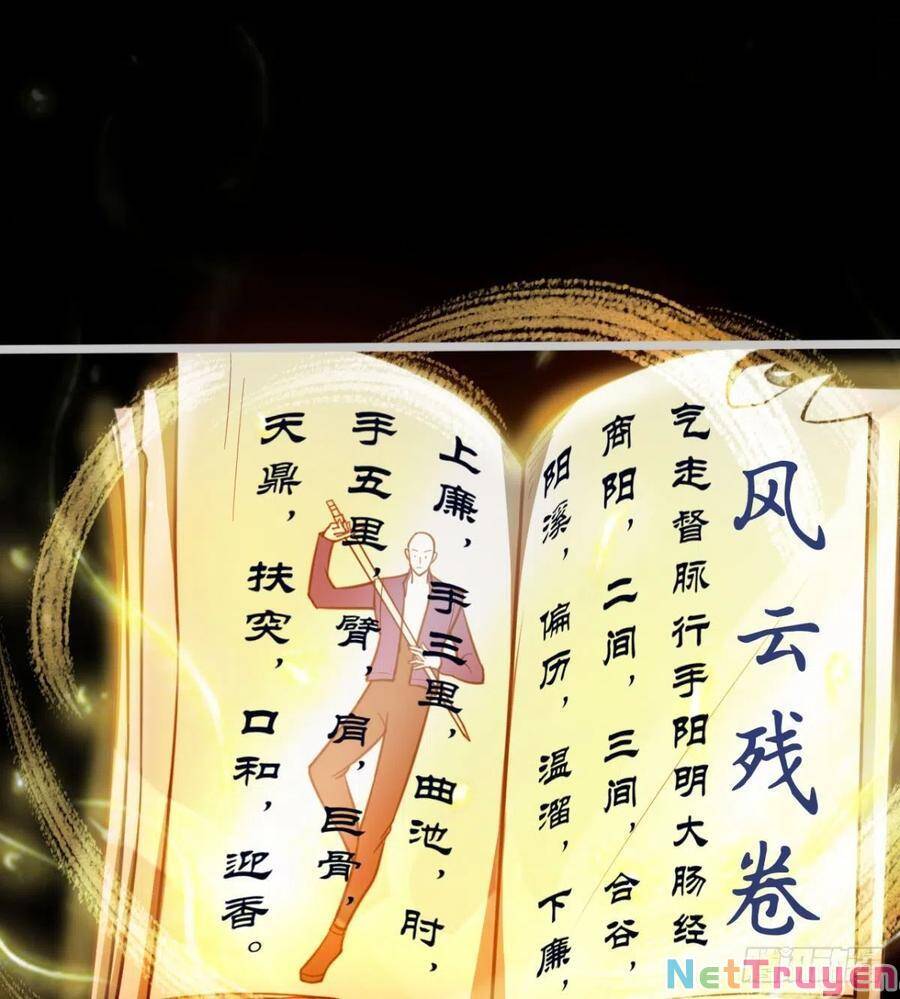 风云残卷
气走督脉行手阳明大肠经
商阳，二间，三间，合谷，
阳溪，偏历，温溜，下廉，
上廉，手三里，曲池，肘，
手五里，臂，肩，巨骨，
天鼎，扶突，口和，迎香。
腾讯动漫
NetTruyen